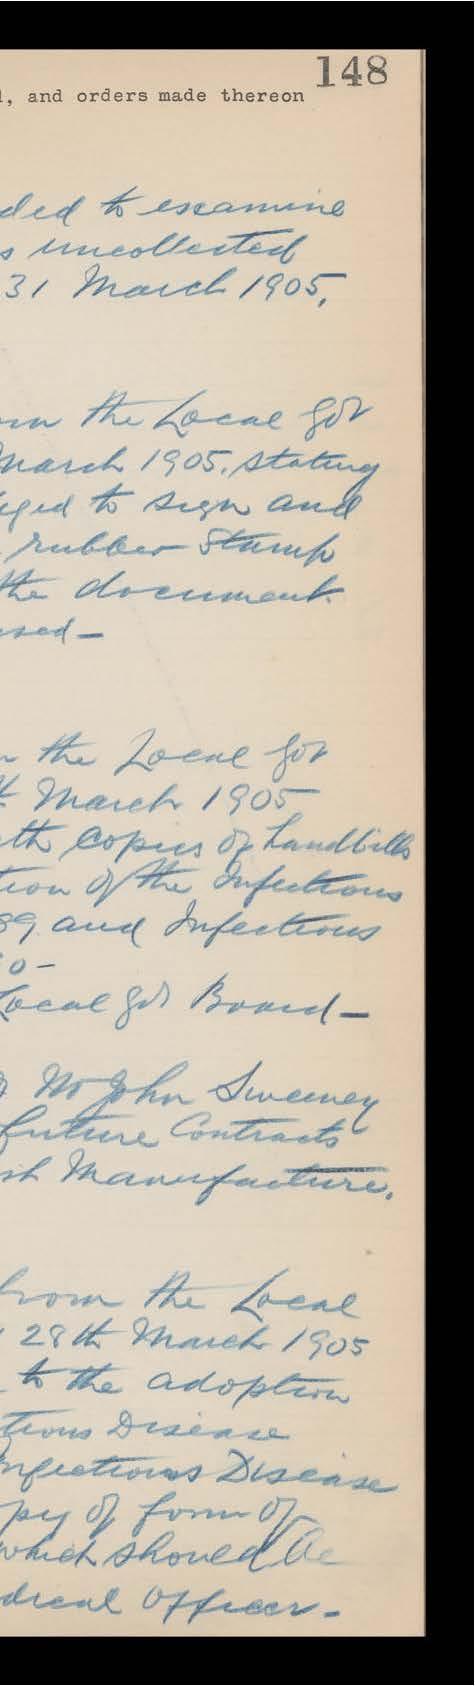 148
l, and orders made thereon
ded to examine
s uncollected
31 March 1905.
the Local Gov
March 1905. stating
to sign and
rubber Stamp
the document.
the Local Gov
March 1905
copies of handbills
tion of the Infectious
89 and Infectious
0-
Local Gov Board-
Mr John Sweeney
future Contracts
sh Manufacture.
from the Local
28th March 1905
to the adoption
tious Disease
Infectious Disease
py of form of
which should be
dical Officer-